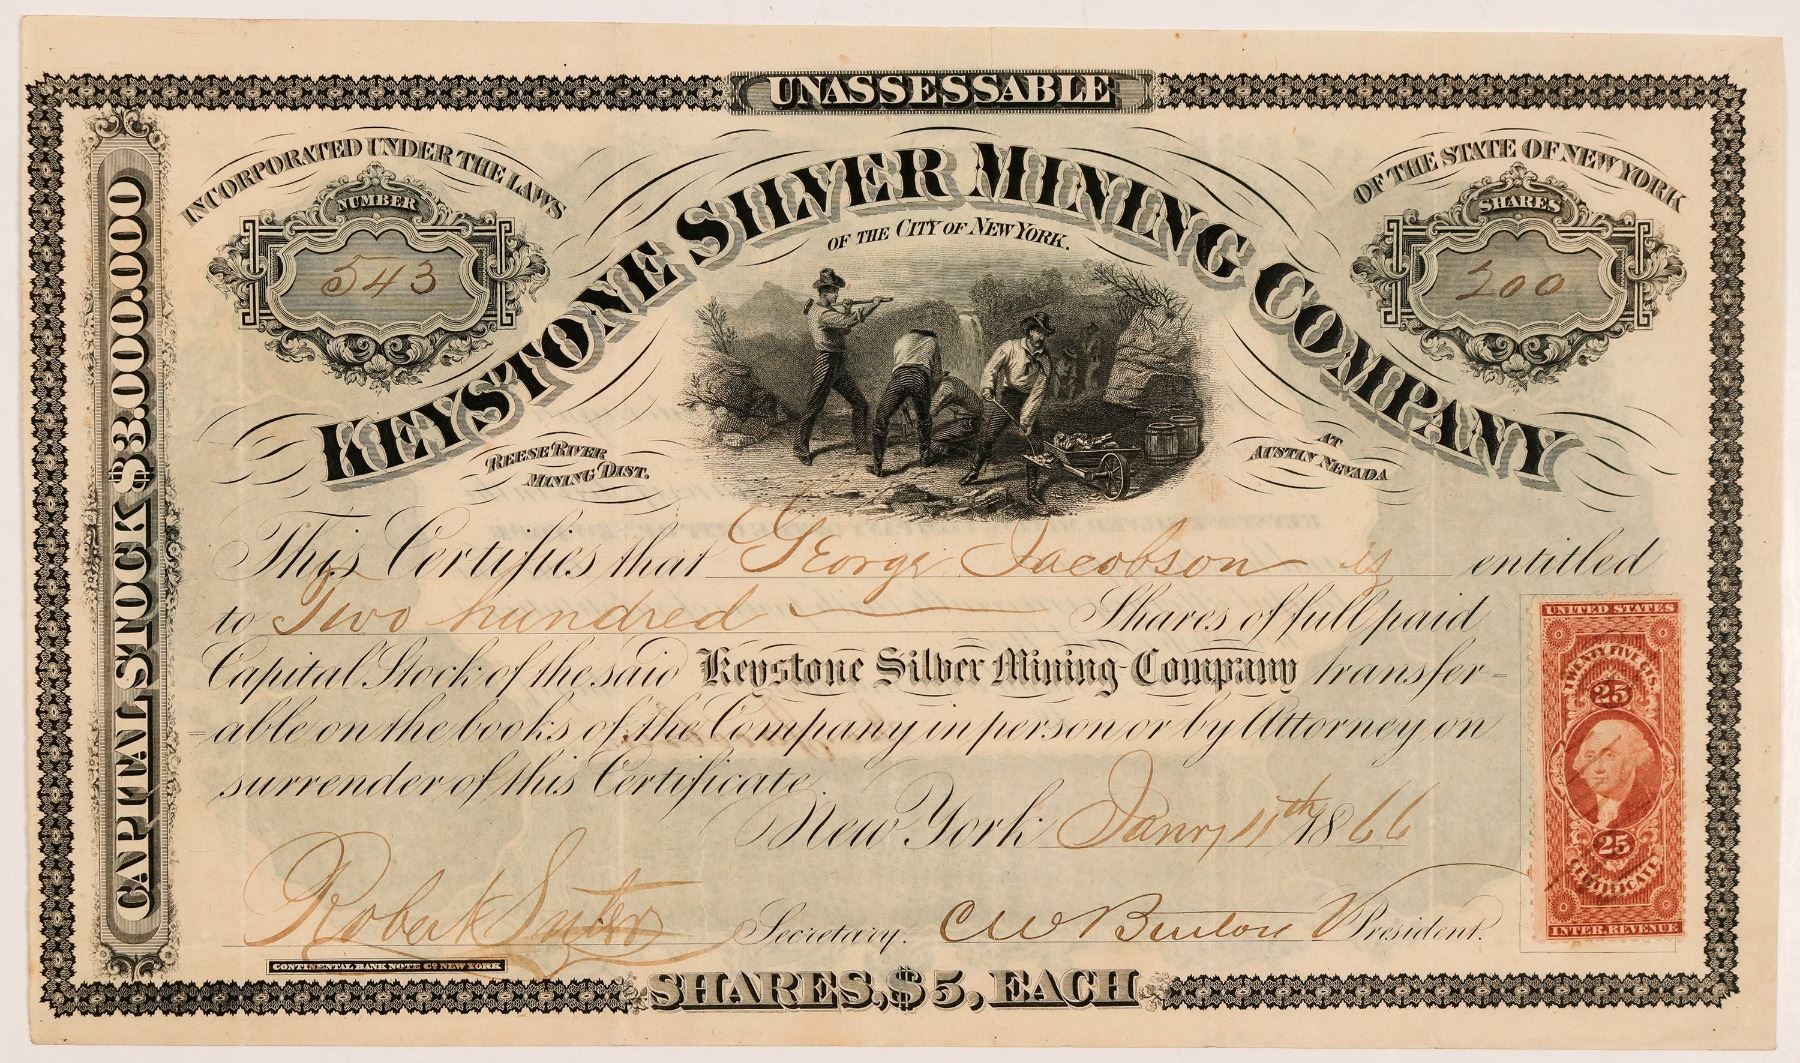 UNASSESSABLE
INCORPORATED UNDER THE LAWS
OF THE STATE OF NEW YORK
NUMBER
543
SHARES
200
KEYSTONE SILVER MINING COMPANY
OF THE CITY OF NEW YORK.
REESE RIVER
MINING DIST.
AT
AUSTIN NEVADA
CAPITAL STOCK $3.000.000
This Certifies that George Jacobson is entitled
to Two hundred Shares of full paid
Capital Stock of the said Keystone Silver Mining Company transfer=
=able on the books of the Company in person or by Attorney on
surrender of this Certificate.
New York Janry 11th 1866
Robert Secretary. C W V President.
UNITED STATES
TWENTY FIVE CTS.
25
25
CERTIFICATE
INTER. REVENUE
CONTINENTAL BANK NOTE Co NEW YORK
SHARES, $5, EACH